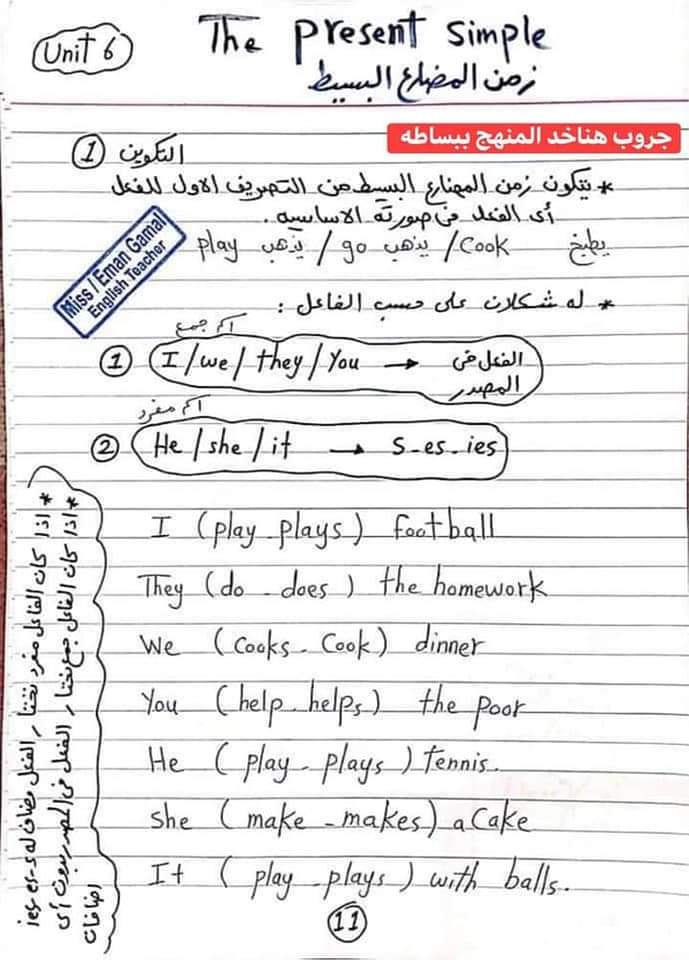 Unit 6
The present simple
زمن المضارع البسيط
جروب هناخد المنهج ببساطه
1 التكوين
* يتكون زمن المضارع البسيط من التصريف الاول للفعل
أى الفعل فى صورته الاساسيه .
play يذهب / go يذهب / Cook يطبخ
Miss / Eman Gamal
English Teacher
* له شكلان على حسب الفاعل :
اسم جمع
1 I / we / they / You → الفعل فى
المصدر
اسم مفرد
2 He / she / it → S - es - ies
I (play - plays) football
They (do - does) the homework
We (Cooks - Cook) dinner
You (help - helps) the poor
He (play - plays) tennis.
She (make - makes) a Cake
It (play - plays) with balls.
* اذا كان الفاعل مفرد نختار الفعل مضاف له ies-es-s
* اذا كان الفاعل جمع نختار الفعل فى المصدر بدون أى
اضافات
11